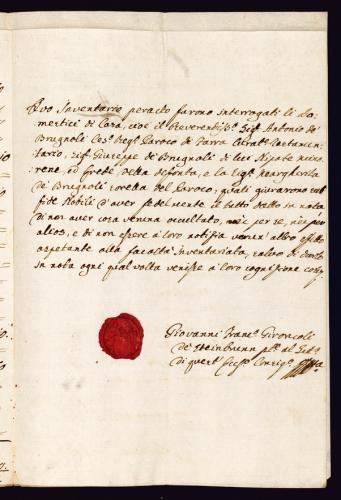 Quo Inventario peracto furono interrogati li Do-
mestici di Casa, cioè il Reverendiss.º Sig.r Antonio de
Brugnoli Ces.º Reg.º Paroco de Parra
tario, Sig.r Giuseppe de Brugnoli di lui Nipote
ed Erede della defonta, e la Sig.ra Margherita
de Brugnoli sorella del Paroco, quali giurarono sub
fide Nobili d'aver fedelmente il tutto detto in nota
di non aver cosa veruna occultato, nè per se, nè per
alios, e di non essere à loro notizia verun' altro effetto
aspetante alla facoltà inventariata, salvo di darlo
in nota ogni qual volta venisse à loro cognizione
Giovanni Fran.º Gironcoli
de Steinbrunn
di quest'